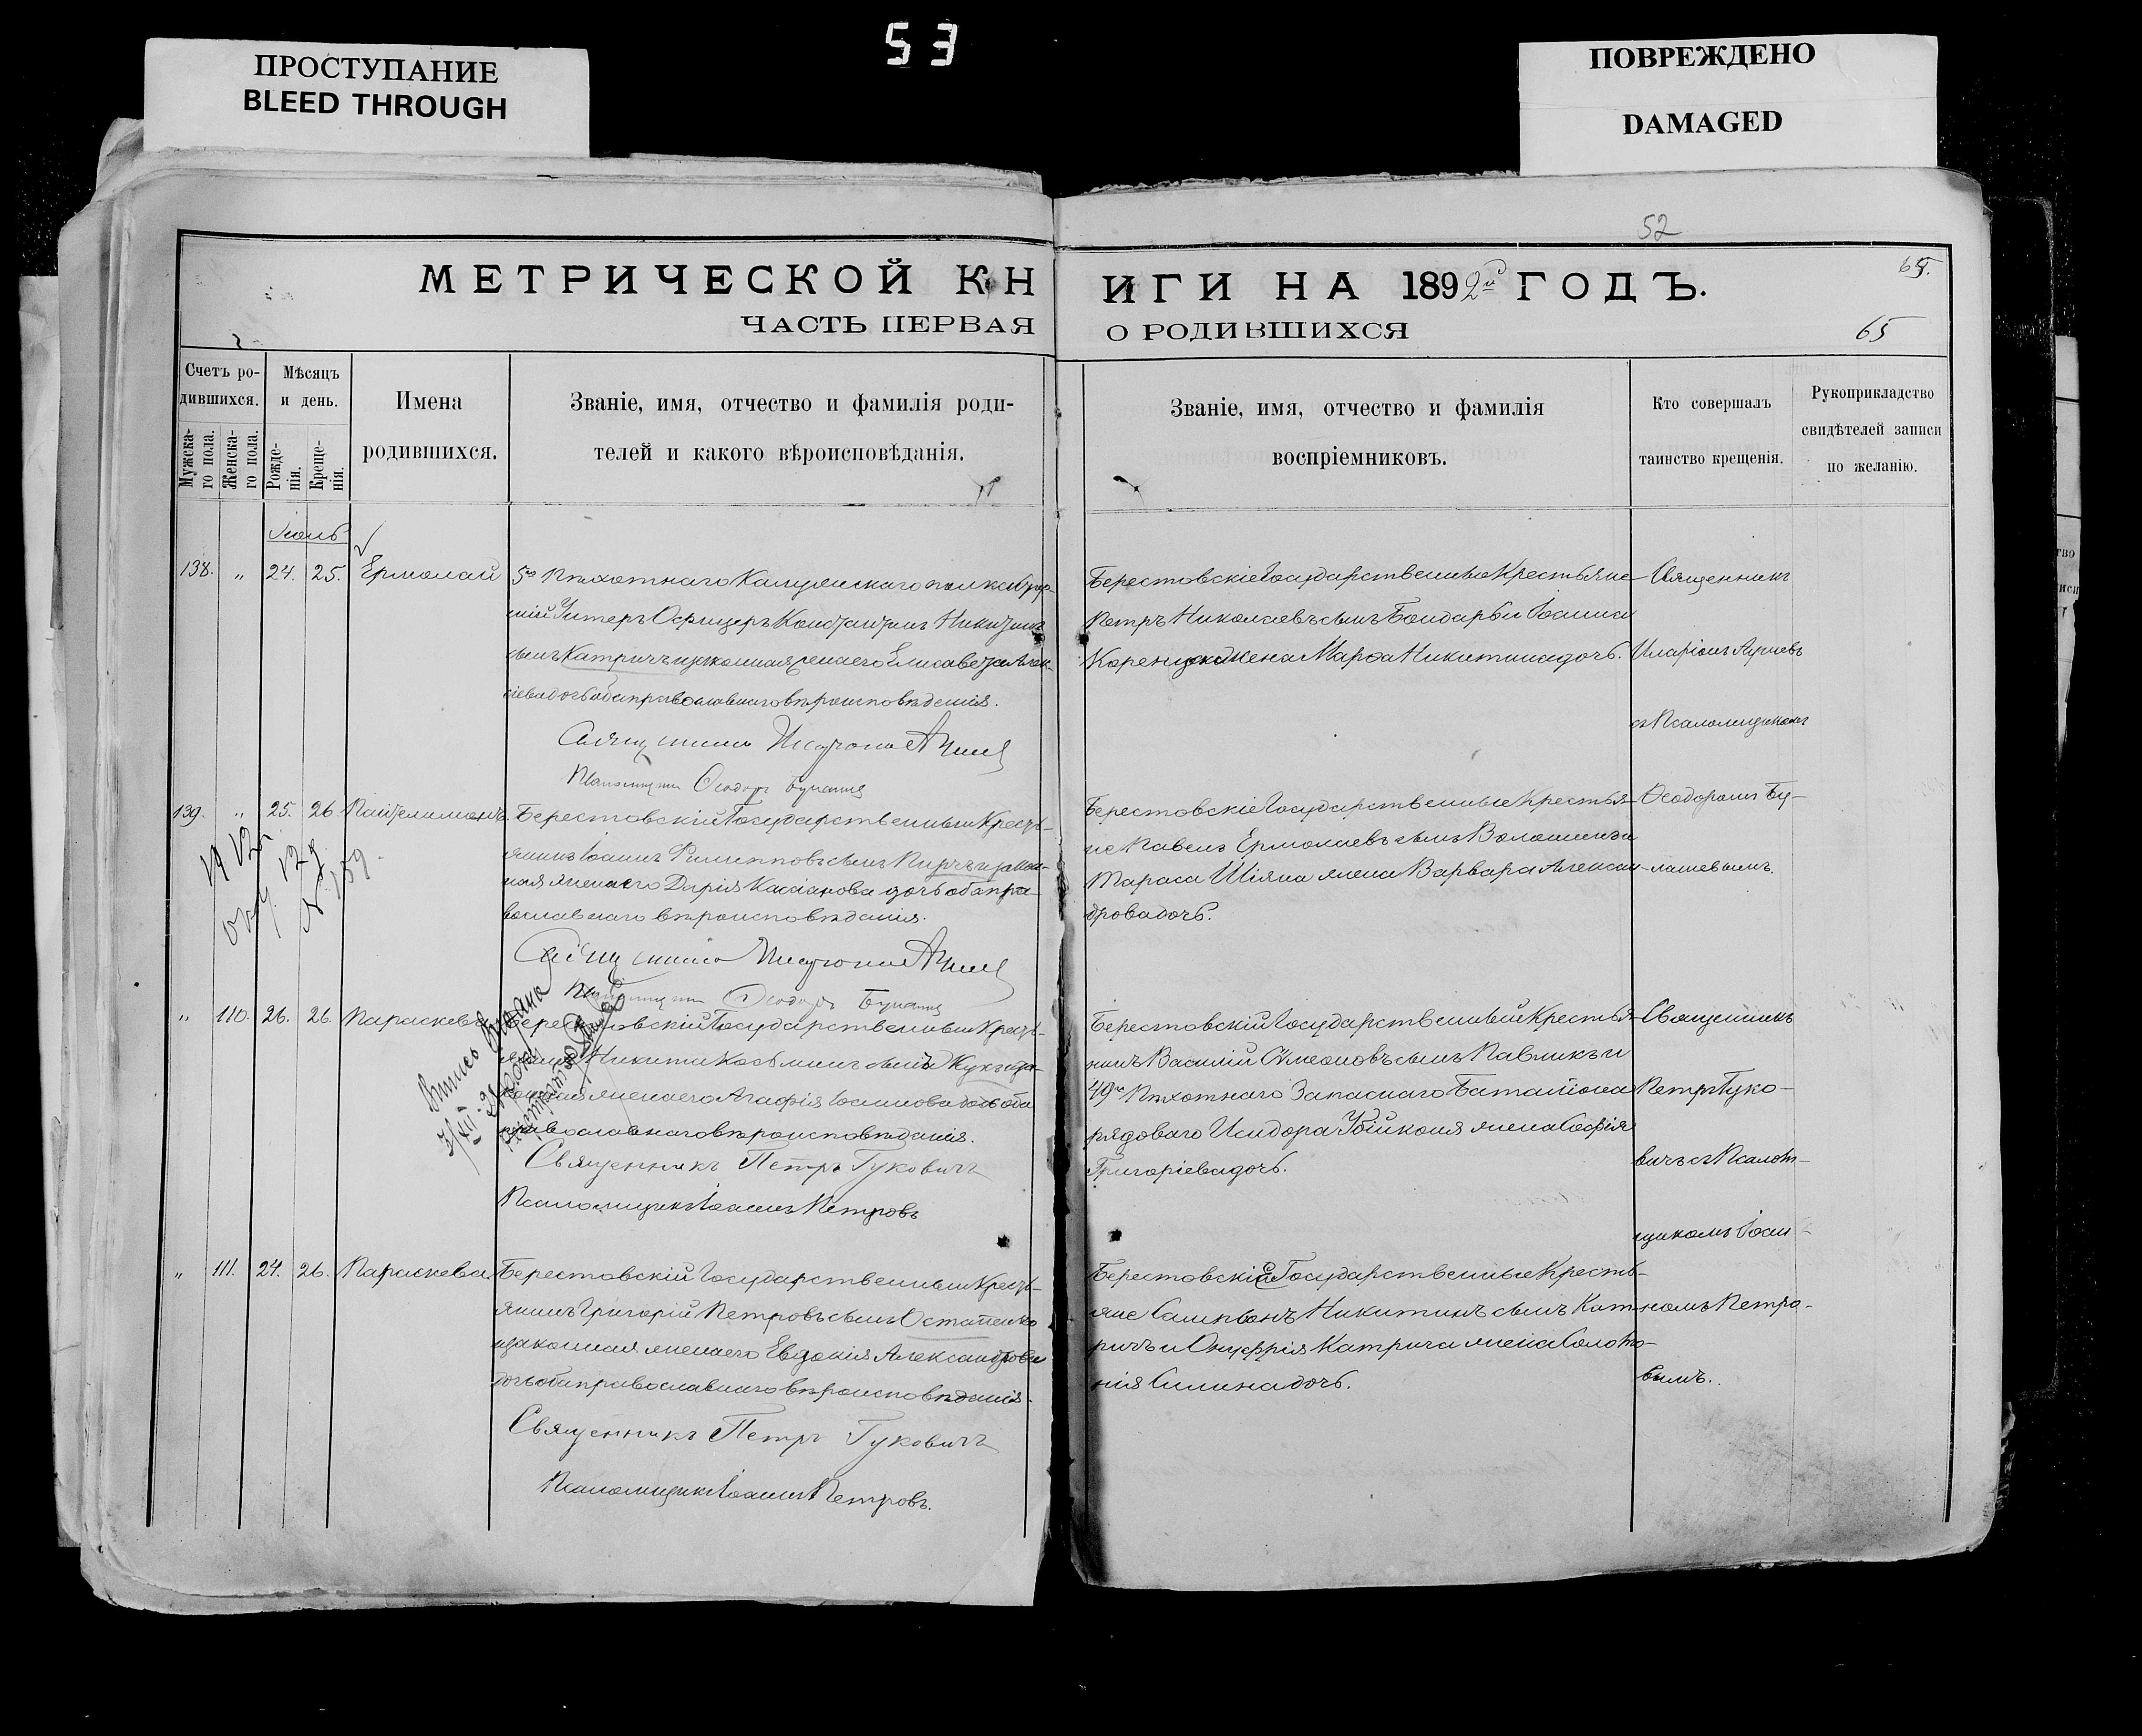 53
ПРОСТУПАНИЕ
BLEED THROUGH
ПОВРЕЖДЕНО
DAMAGED
52
МЕТРИЧЕСКОЙ КН
ИГИ НА 1892й ГОДЪ.
65.
ЧАСТЬ ПЕРВАЯ
О РОДИВШИХСЯ
65
Счетъ ро-
дившихся.
Мужска-
го пола.
Женска-
го пола.
Мѣсяцъ
и день.
Рожде-
нія.
Креще-
нія.
Имена
родившихся.
Званіе, имя, отчество и фамилія роди-
телей и какого вѣроисповѣданія.
Званіе, имя, отчество и фамилія
воспріемниковъ.
Кто совершалъ
таинство крещенія.
Рукоприкладство
свидѣтелей записи
по желанію.
Іюль
138. „ 24. 25. Ермолай
5го Пѣхотнаго Калужскаго полка
Унтеръ Офицеръ Константинъ Никитинъ
сынъ Катричъ и законная жена его Елисавета Алек-
сіева дочь оба православнаго вѣроисповѣданія.
Берестовскіе Государственные Крестьяне
Петръ Николаевъ сынъ Бондарь и Іоанна
жена Марѳа Никитина дочь.
Священникъ
Иларіонъ
съ Псаломщикомъ
Ѳеодоромъ Бу-
лашевымъ.
139. „ 25. 26. Пантелимонъ.
Берестовскій Государственный Кресть-
янинъ Іоаннъ Филипповъ сынъ и закон-
ная жена его Дарія Касіанова дочь оба пра-
вославнаго вѣроисповѣданія.
Берестовскіе Государственные Крестья-
не Павелъ Ермолаевъ сынъ Волошинъ и
Тараса Шіяна жена Варвара Алексан-
дрова дочь.
„ 110. 26. 26. Параскева
Берестовскій Государственный Кресть-
янинъ Никита Косьминъ сынъ Жукъ и за-
конная жена его Агафія Іоаннова дочь оба
православнаго вѣроисповѣданія.
Священникъ Петръ Гуковичъ
Псаломщикъ Іоаннъ Петровъ
Берестовскій Государственный Крестья-
нинъ Василій Симеоновъ сынъ Павликъ и
49го Пѣхотнаго Запаснаго Баталіона
рядоваго Исидора Убійконя жена Софія
Григоріева дочь.
Священникъ
Петръ Гуко-
вичъ съ Псалом-
щикомъ Іоан-
номъ Петро-
вымъ.
„ 111. 24. 26. Параскева.
Берестовскій Государственный Кресть-
янинъ Григорій Петровъ сынъ Остапенко
и законная жена его Евдокія Александрова
дочь оба православнаго вѣроисповѣданія.
Священникъ Петръ Гуковичъ
Псаломщикъ Іоаннъ Петровъ.
Берестовскіе Государственные Кресть-
яне Сампсонъ Никитинъ сынъ Кат-
ричъ и Онуфрія Катрича жена Соломо-
нія Силина дочь.